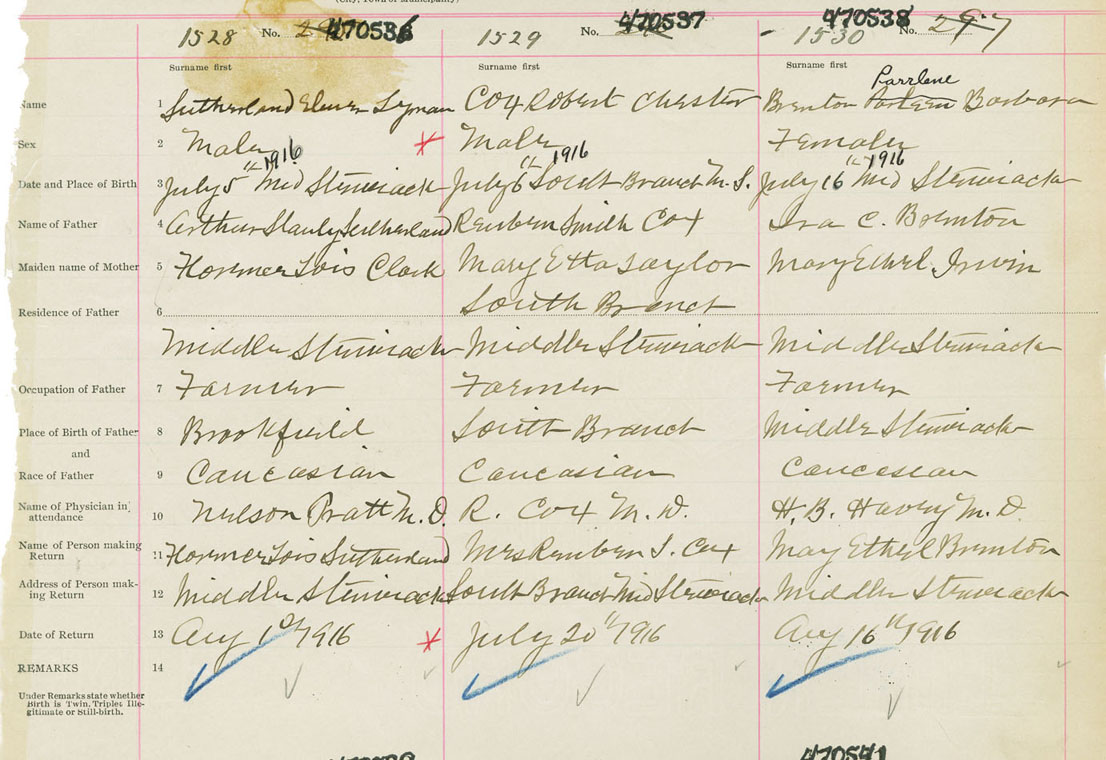 (City, Town or Municipality)
1528 No. 470536 1529 No. 470537 1530 470538 No. 297
Surname first Surname first Surname first
Parrlene
Name 1 Sutherland Elmer Lyman Cox Robert Chester Brenton Barbara
Sex 2 Male Male Female
1916 1916 1916
Date and Place of Birth 3 July 5th Mid Stewiacke July 6th South Branch M. S. July 16th Mid Stewiacke
Name of Father 4 Arthur Stanly Sutherland Reuben Smith Cox Ira C. Brenton
Maiden name of Mother 5 Florence Lois Clark Mary Etta Taylor Mary Ethel Irwin
Residence of Father 6 South Branch
Middle Stewiacke Middle Stewiacke Middle Stewiacke
Occupation of Father 7 Farmer Farmer Farmer
Place of Birth of Father 8 Brookfield South Branch Middle Stewiacke
and
Race of Father 9 Caucasian Caucasian Caucasian
Name of Physician in attendance 10 Nelson Pratt M. D. R. Cox M. D. H. B. Havey M. D.
Name of Person making Return 11 Florence Lois Sutherland Mrs Reuben S. Cox Mary Ethel Brenton
Address of Person making Return 12 Middle Stewiacke South Branch Mid Stewiacke Middle Stewiacke
Date of Return 13 Aug 1st 1916 July 20th 1916 Aug 16th 1916
REMARKS 14
Under Remarks state whether
Birth is Twin, Triplet, Ille-
gitimate or Still-birth.
470541